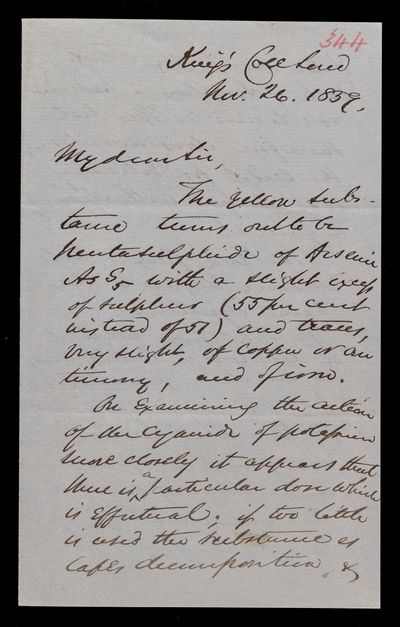 344
King's Coll Lond
Nov. 26. 1859,
My dear Sir,
The yellow subs-
tance turns out to be
pentasulphide of Arsenic
As S5 with a slight excess
of sulphur (55 per cent
instead of 51) and traces,
very slight, of copper or an
timony, and of iron.
On examining the action
of the Cyanide of potassium
more closely it appears that
there is a particular dose which
is effectual; if too little
is used the substance es
capes decomposition, &